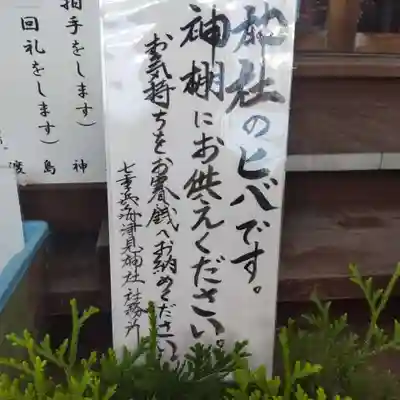 神社のヒバです。
神棚にお供えください。
お気持ちをお賽銭へお納めください。
海津見神社 社務所
拍手をします)
回礼をします)
神
島
渡